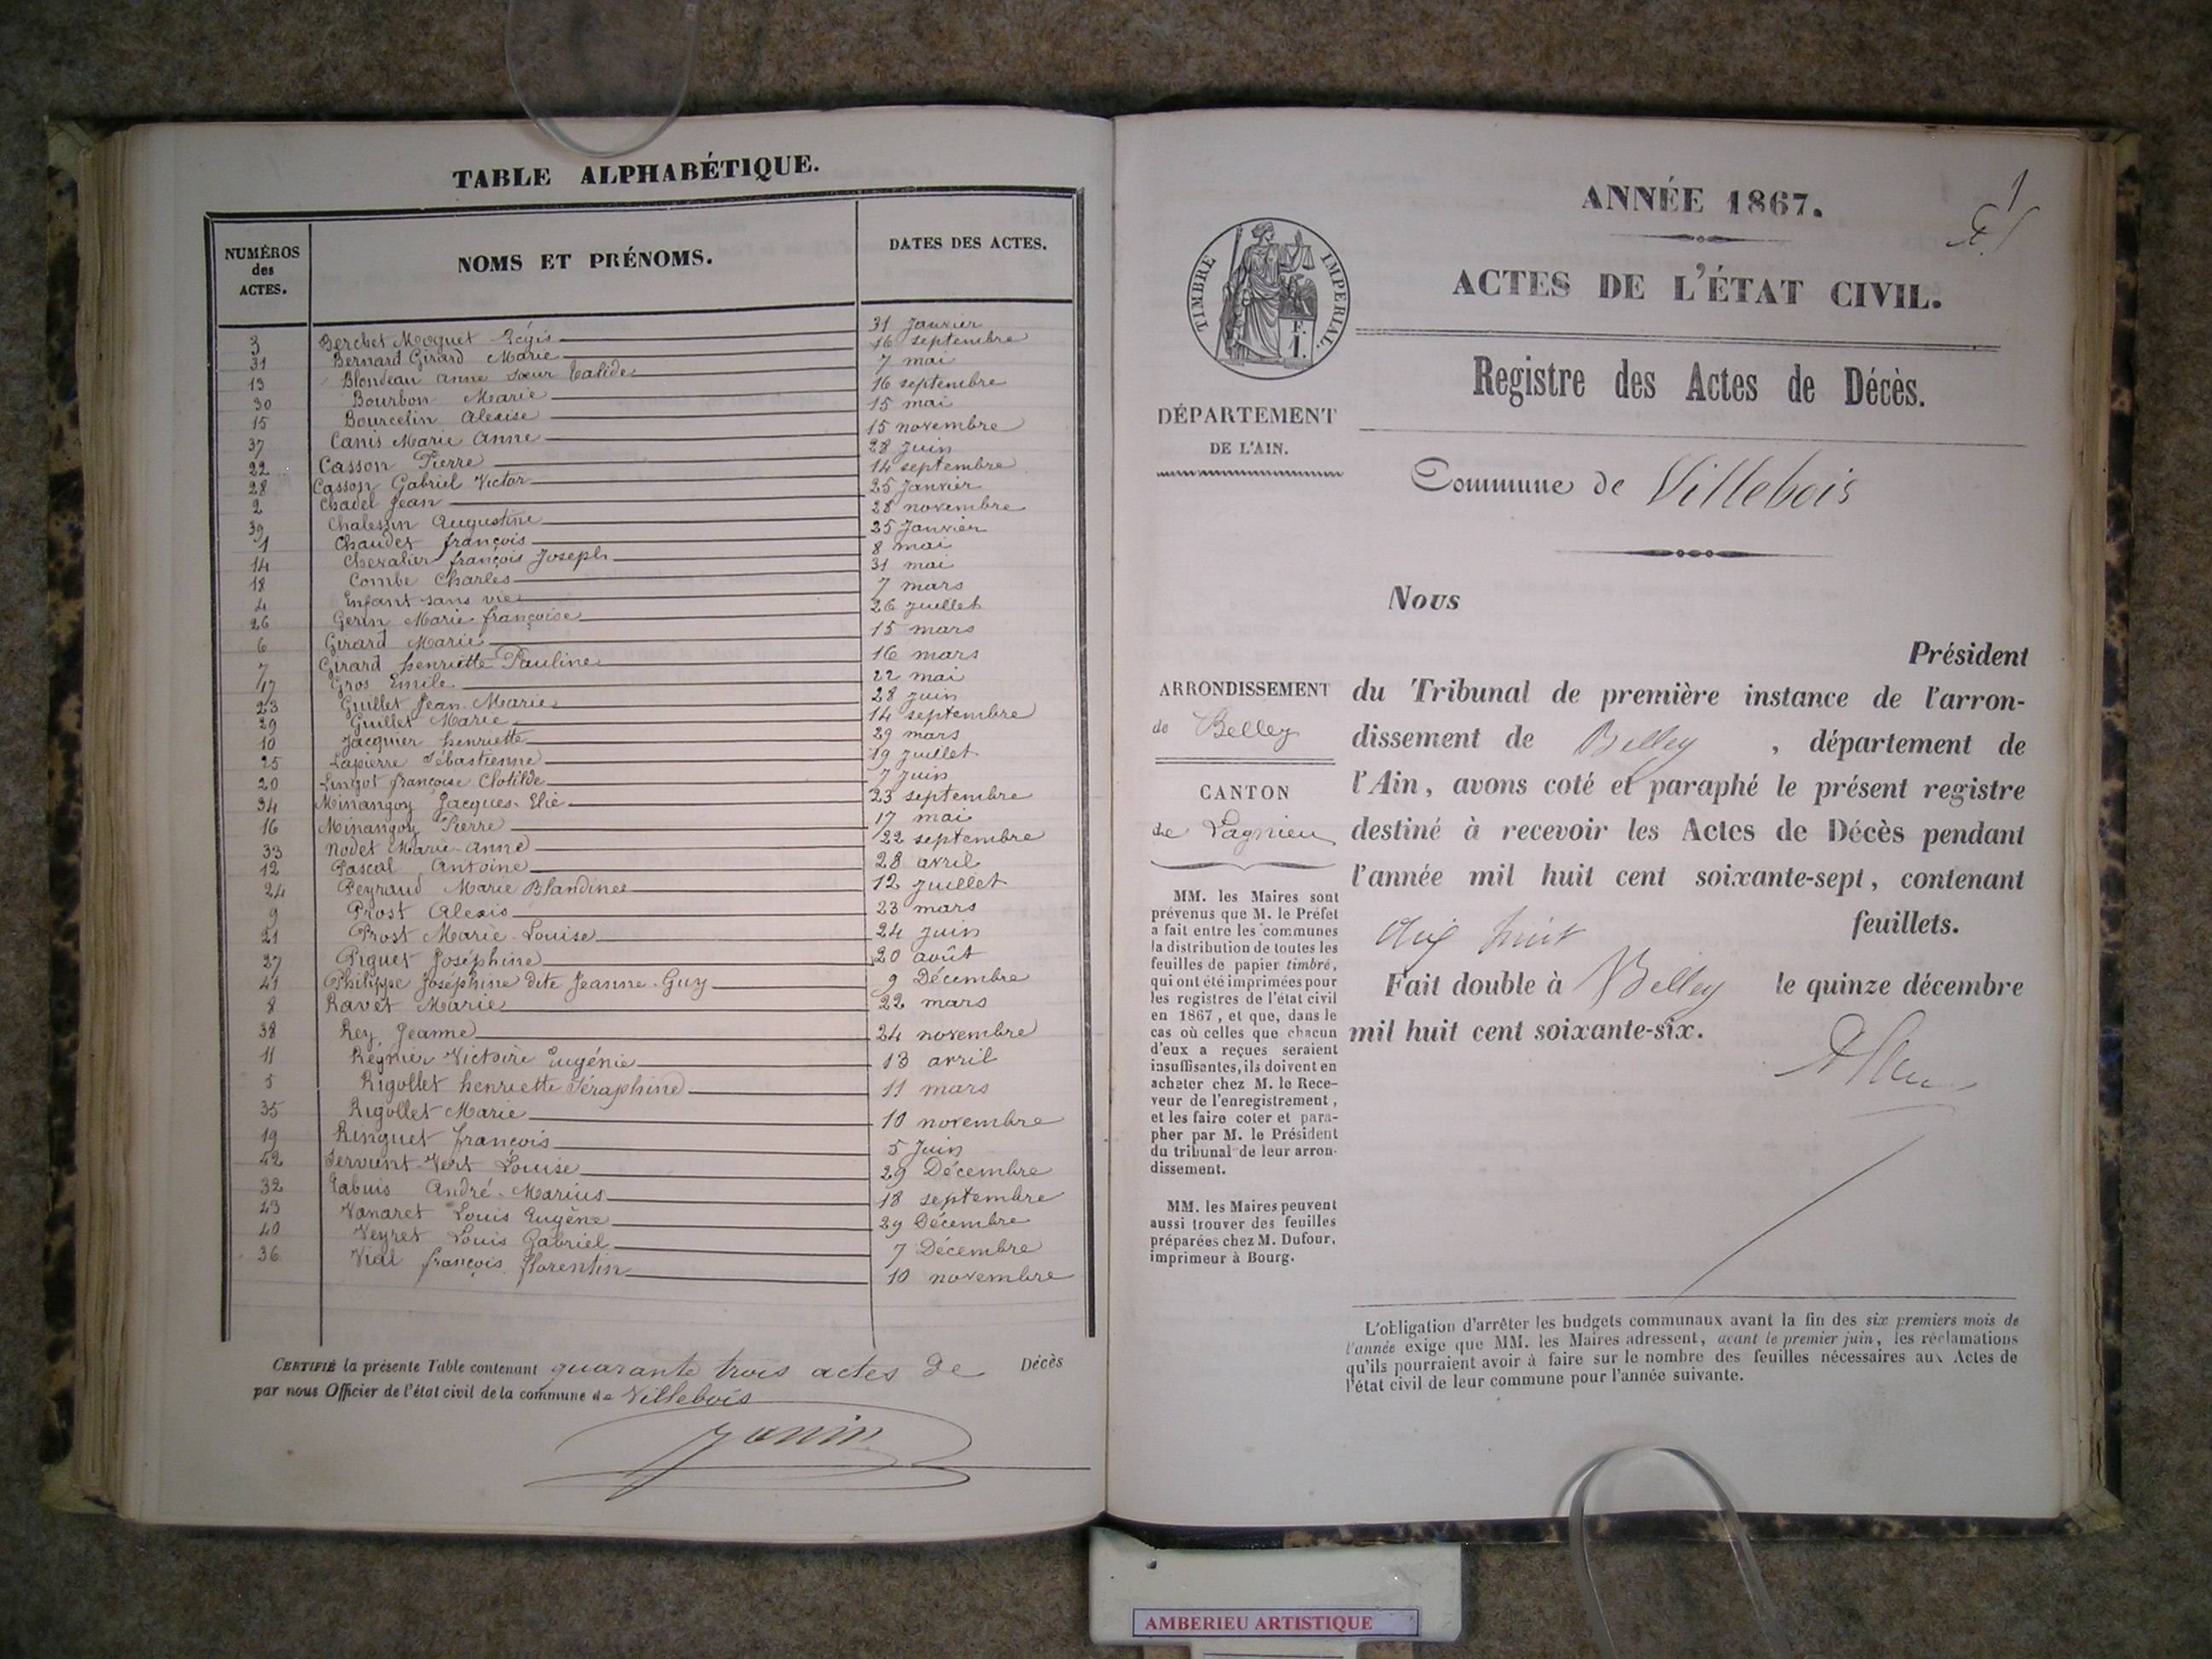 TABLE ALPHABÉTIQUE.
NUMÉROS des ACTES. NOMS ET PRÉNOMS. DATES DES ACTES.
3 Berchet Moguet Régis 31 Janvier
31 Bernard Girard Marie 16 septembre
13 Blondeau anne sœur 7 mai
30 Bourbon Marie 16 septembre
15 Bourcelin alexise 15 mai
37 Canis Marie anne 15 novembre
22 Casson Pierre 28 Juin
28 Casson Gabriel Victor 14 septembre
2 Chadel Jean 25 Janvier
39 Chalessin augustine 28 novembre
1 Chaudet françois 25 Janvier
14 Chevalier françois Joseph 8 mai
18 Combe Charles 31 mai
4 Enfant sans vie 7 mars
26 Gerin Marie françoise 26 Juillet
6 Girard Marie 15 mars
7 Girard henriette Pauline 16 mars
17 Gros Emile 22 mai
23 Guillet Jean Marie 28 Juin
29 Guillet Marie 14 septembre
10 Jacquier henriette 29 mars
25 Lapierre Sébastienne 19 Juillet
20 Lingot françoise Clotilde 7 Juin
34 Minangoy Jacques-Elie 23 septembre
16 Minangoy Pierre 17 mai
33 Nodet Marie-anne 22 septembre
12 Pascal Antoine 28 avril
24 Peyraud Marie Blandine 12 Juillet
9 Prost Alexis 23 mars
21 Prost Marie-Louise 24 Juin
27 Piquet Joséphine 20 août
41 Philippe Joséphine dite Jeanne-Guy 9 Décembre
8 Ravet Marie 22 mars
38 Rey Jeanne 24 novembre
11 Régnier Victoire Eugénie 13 avril
5 Rigollet henriette Séraphine 11 mars
35 Rigollet Marie 10 novembre
19 Ringuet françois 5 Juin
42 Servent-Vert Louise 29 Décembre
32 Tabuis André-Marius 18 septembre
43 Vanaret Louis Eugène 29 Décembre
40 Veyret Louis Gabriel 7 Décembre
36 Vial françois florentin 10 novembre
CERTIFIÉ la présente Table contenant quarante trois actes de Décès
par nous Officier de l'état civil de la commune de Villebois
Janin
1
ANNÉE 1867.
ACTES DE L'ÉTAT CIVIL.
TIMBRE IMPERIAL.
F. 1.
Registre des Actes de Décès.
DÉPARTEMENT
DE L'AIN.
Commune de Villebois
Nous
Président
du Tribunal de première instance de l'arron-
dissement de Belley, département de
l'Ain, avons coté et paraphé le présent registre
destiné à recevoir les Actes de Décès pendant
l'année mil huit cent soixante-sept, contenant
dix huit feuillets.
Fait double à Belley le quinze décembre
mil huit cent soixante-six.
ARRONDISSEMENT
de Belley
CANTON
de Lagnieu
MM. les Maires sont
prévenus que M. le Préfet
a fait entre les communes
la distribution de toutes les
feuilles de papier timbré,
qui ont été imprimées pour
les registres de l'état civil
en 1867, et que, dans le
cas où celles que chacun
d'eux a reçues seraient
insuffisantes, ils doivent en
acheter chez M. le Rece-
veur de l'enregistrement,
et les faire coter et para-
pher par M. le Président
du tribunal de leur arron-
dissement.
MM. les Maires peuvent
aussi trouver des feuilles
préparées chez M. Dufour,
imprimeur à Bourg.
L'obligation d'arrêter les budgets communaux avant la fin des six premiers mois de
l'année exige que MM. les Maires adressent, avant le premier juin, les réclamations
qu'ils pourraient avoir à faire sur le nombre des feuilles nécessaires aux Actes de
l'état civil de leur commune pour l'année suivante.
AMBERIEU ARTISTIQUE